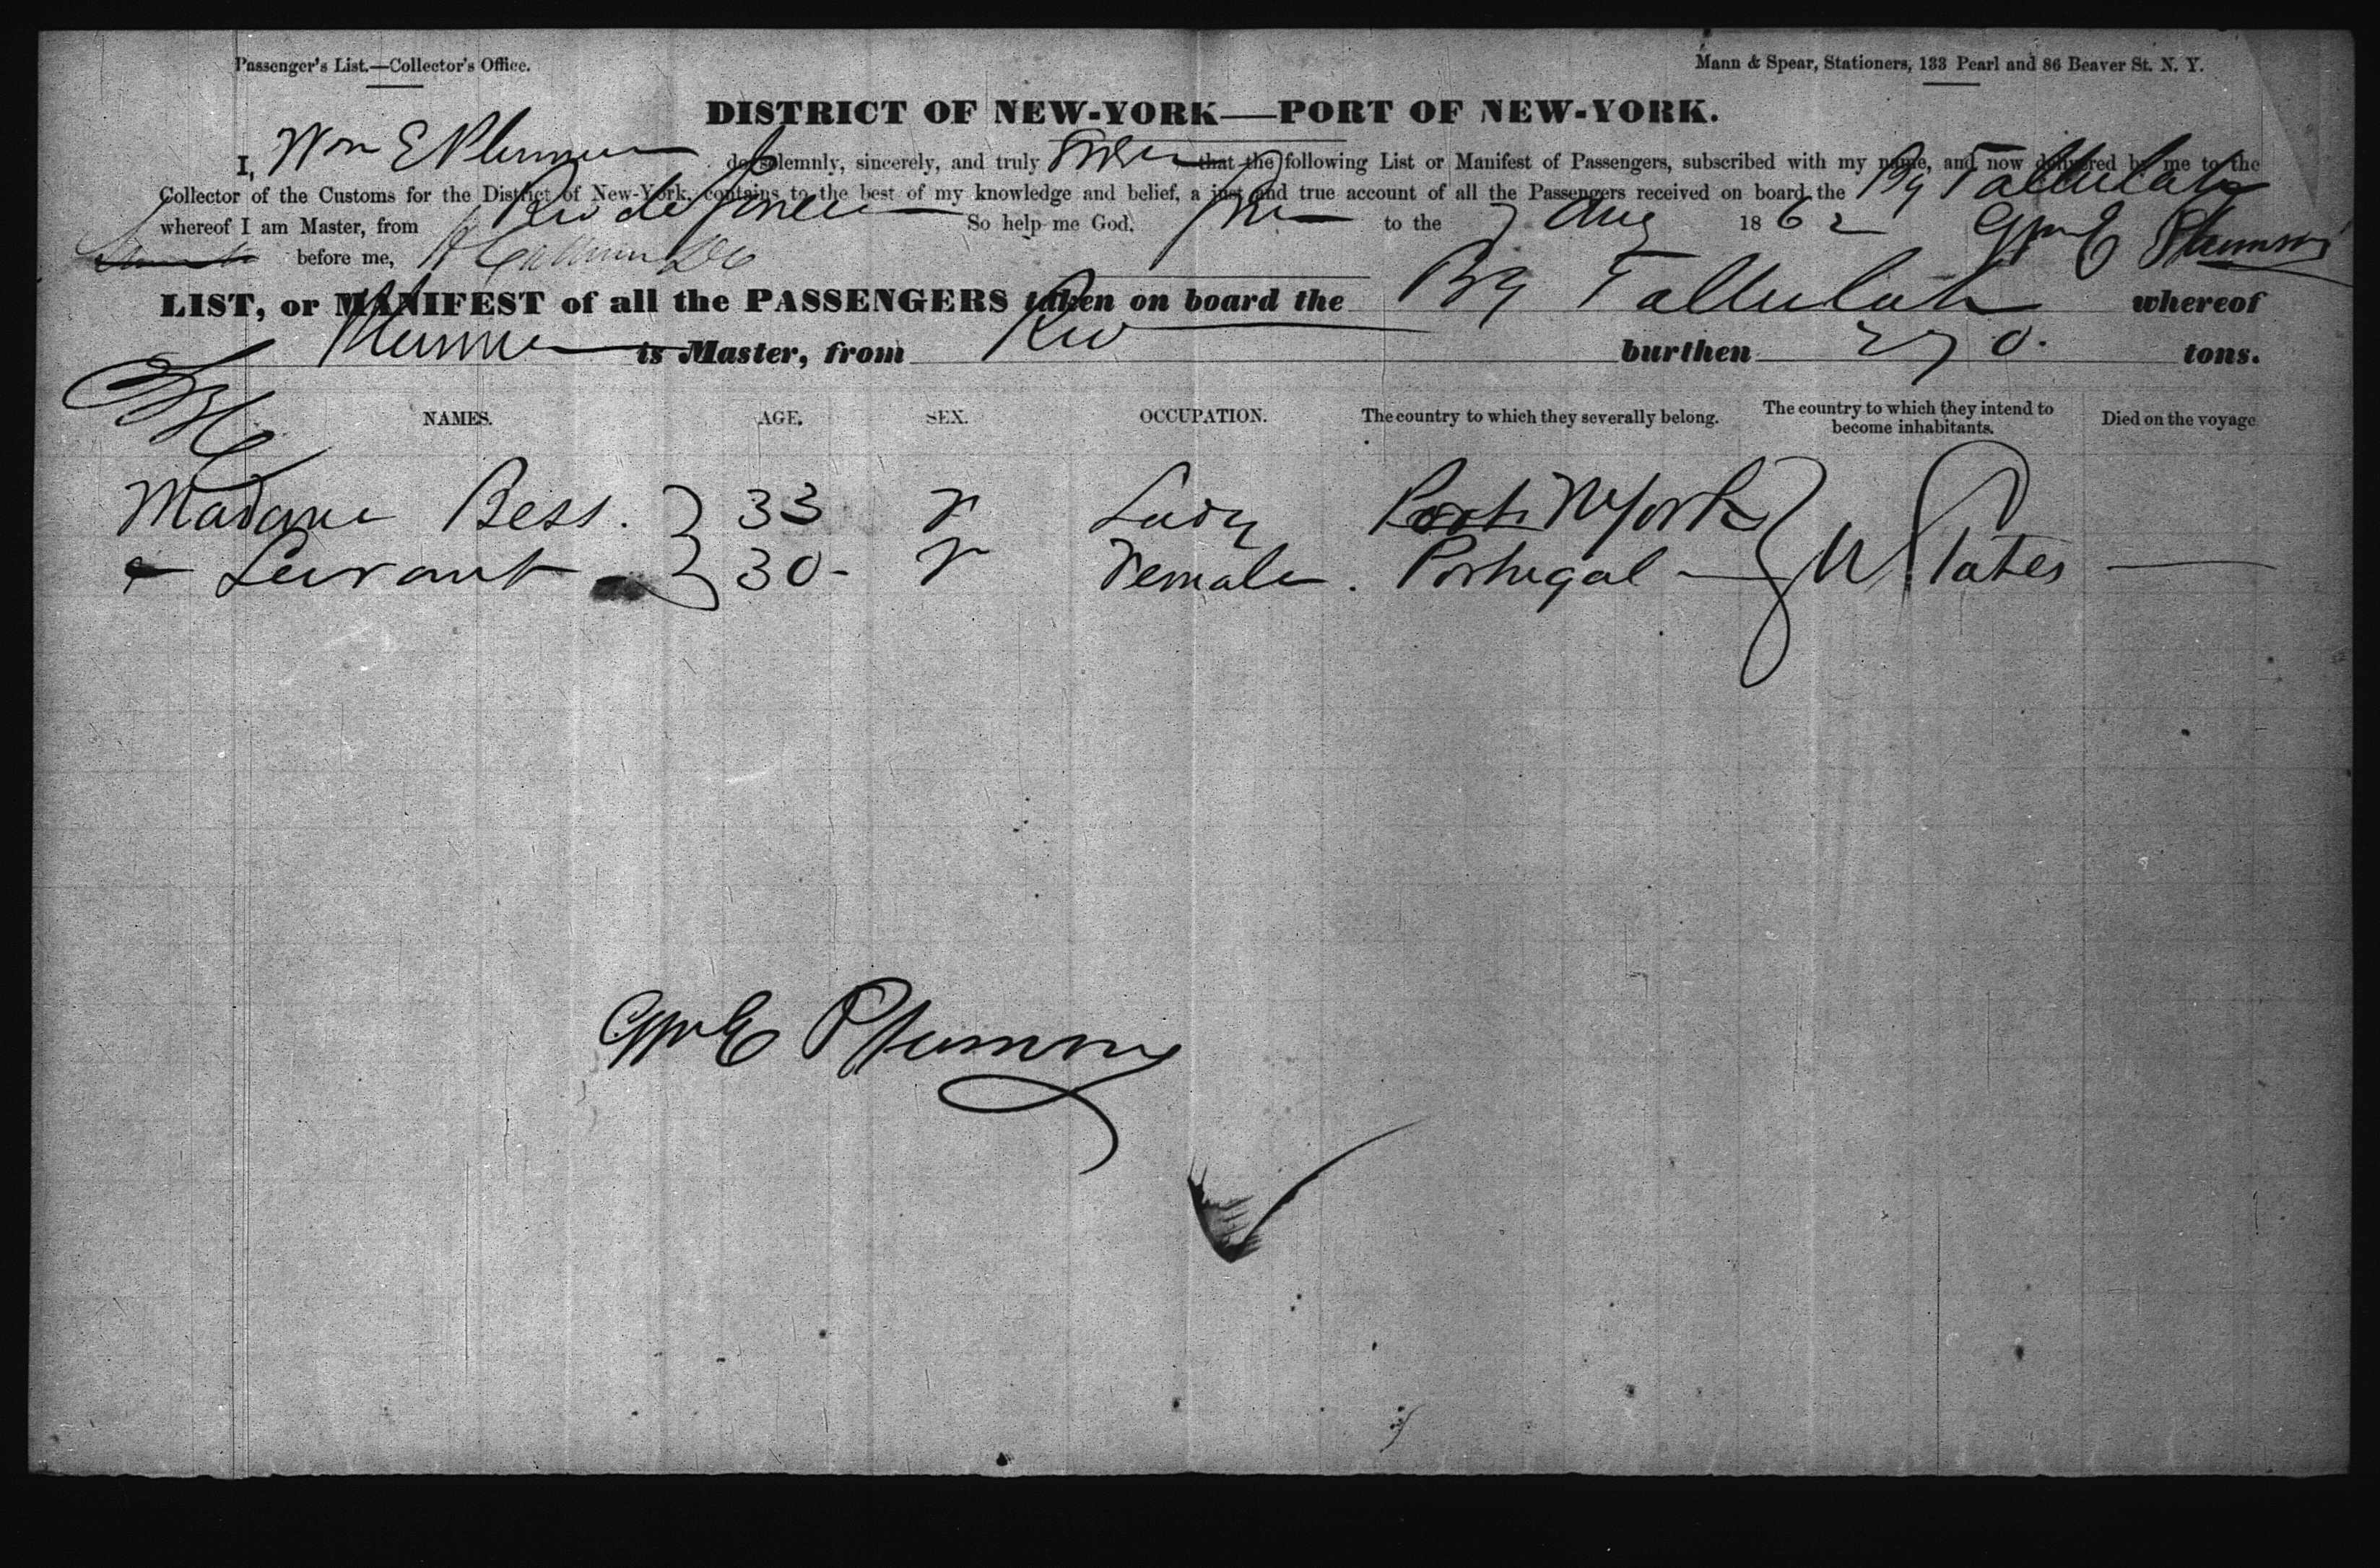 Passenger's List.—Collector's Office.
Mann & Spear, Stationers, 133 Pearl and 86 Beaver St. N. Y.
DISTRICT OF NEW-YORK—PORT OF NEW-YORK.
I, Wm E Plummer do solemnly, sincerely, and truly Swear that the following List or Manifest of Passengers, subscribed with my name, and now delivered by me to the
Collector of the Customs for the District of New-York, contains to the best of my knowledge and belief, a just and true account of all the Passengers received on board the Bg Tallulah
whereof I am Master, from Rio de Janeiro So help me God.
to the 7 Aug 1862 Wm E Plummer
before me,
LIST, or MANIFEST of all the PASSENGERS taken on board the Bg Tallulah whereof
Plummer is Master, from Rio burthen 270. tons.
NAMES. AGE. SEX. OCCUPATION. The country to which they severally belong. The country to which they intend to become inhabitants. Died on the voyage
Madame Bess. 33 F Lady N York
& Servant 30- F Female. Portugal U States
Wm E Plummer